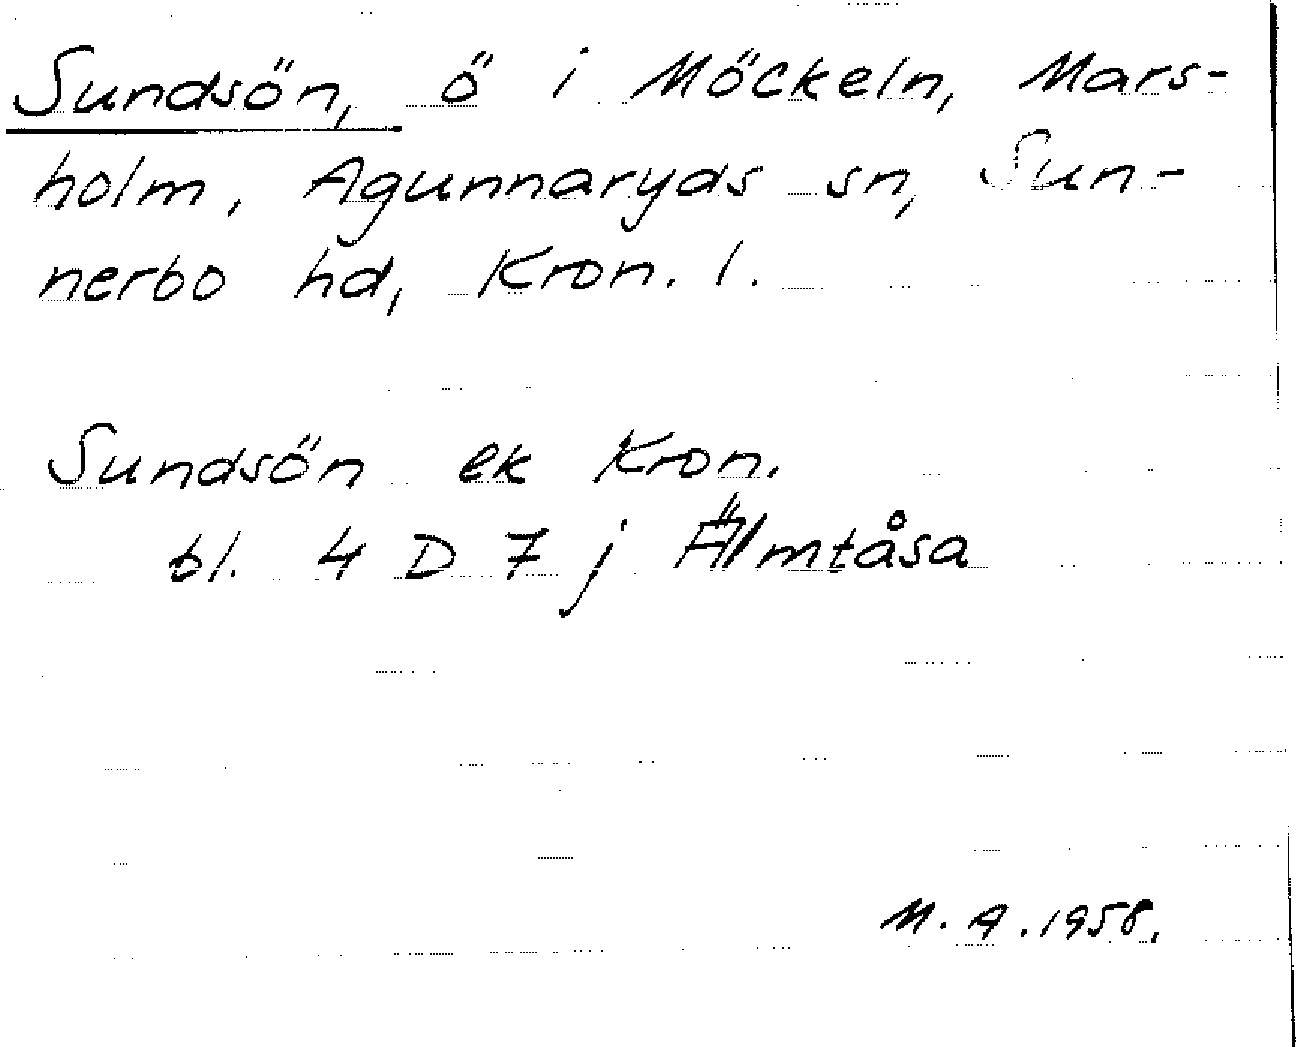 Sundsön, ö i Möckeln, Mars-
holm, Agunnaryds sn, Sun-
nerbo hd, Kron. l.
Sundsön ek Kron.
bl. 4 D 7 j Älmtåsa
M. A. 1958.